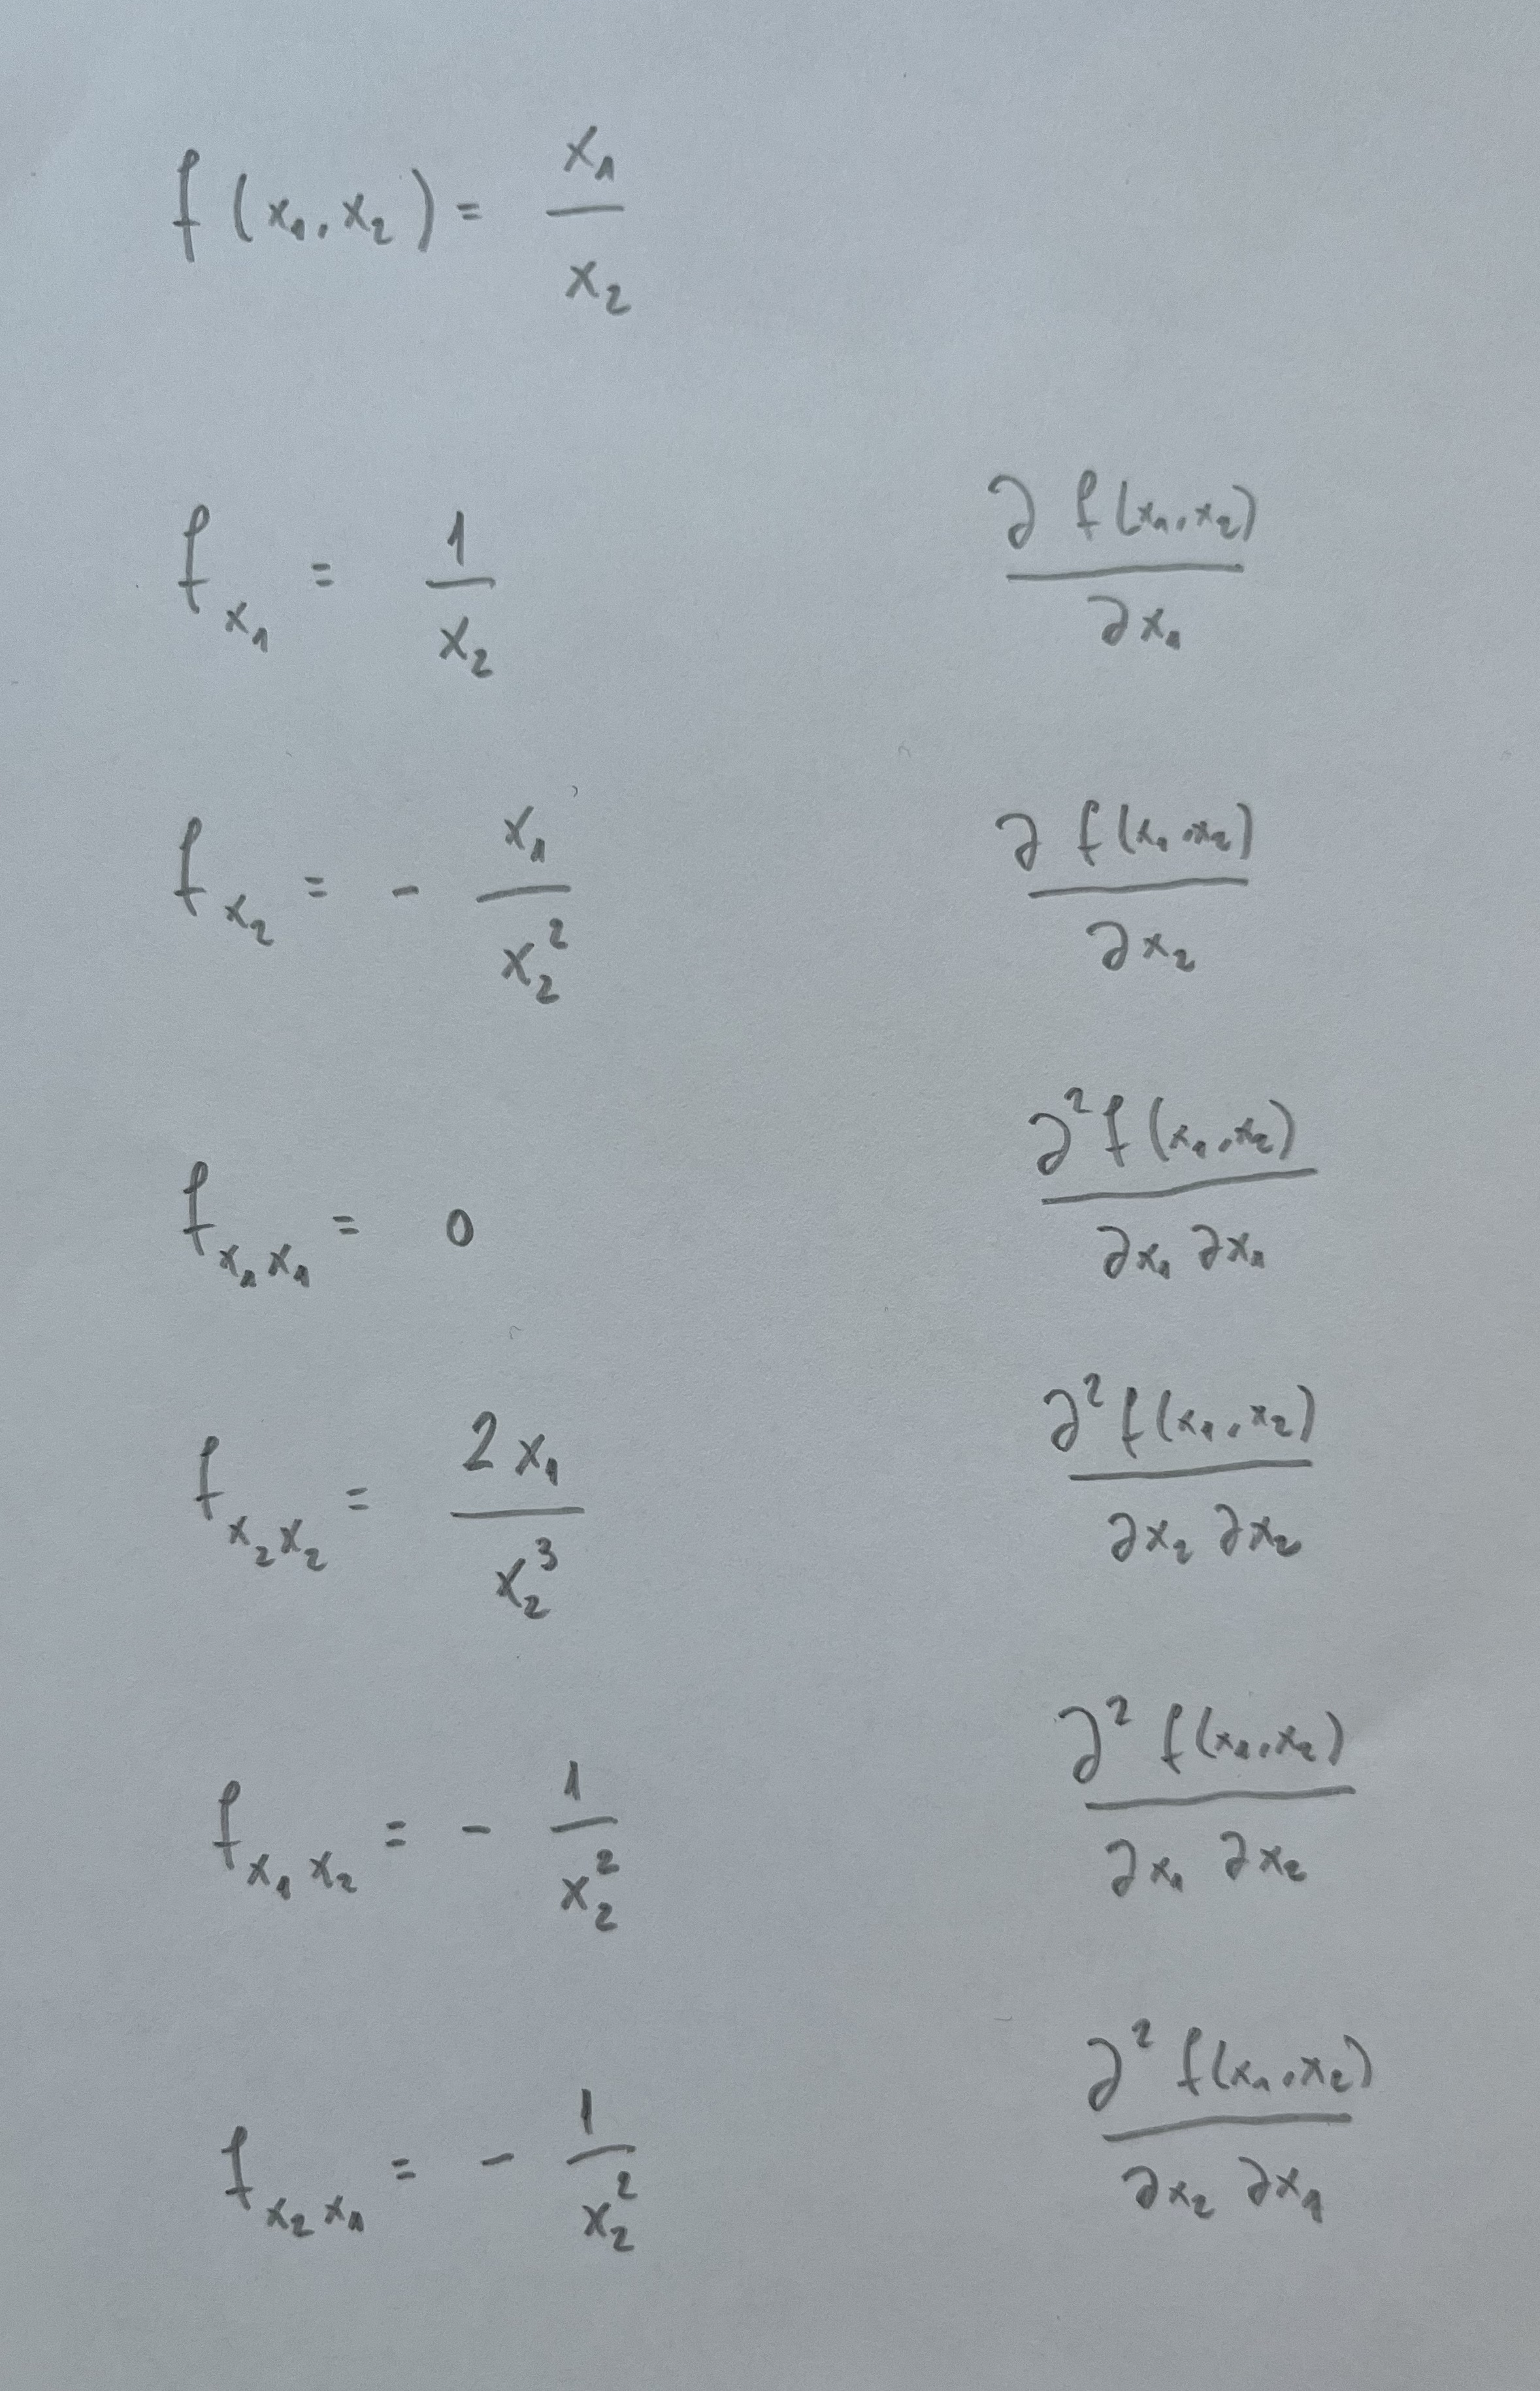 f(x₁, x₂) = x₁ / x₂
f_x₁ = 1 / x₂    ∂ f(x₁, x₂) / ∂x₁
f_x₂ = - x₁ / x₂²    ∂ f(x₁, x₂) / ∂x₂
f_x₁x₁ = 0    ∂² f(x₁, x₂) / ∂x₁ ∂x₁
f_x₂x₂ = 2x₁ / x₂³    ∂² f(x₁, x₂) / ∂x₂ ∂x₂
f_x₁x₂ = - 1 / x₂²    ∂² f(x₁, x₂) / ∂x₁ ∂x₂
f_x₂x₁ = - 1 / x₂²    ∂² f(x₁, x₂) / ∂x₂ ∂x₁